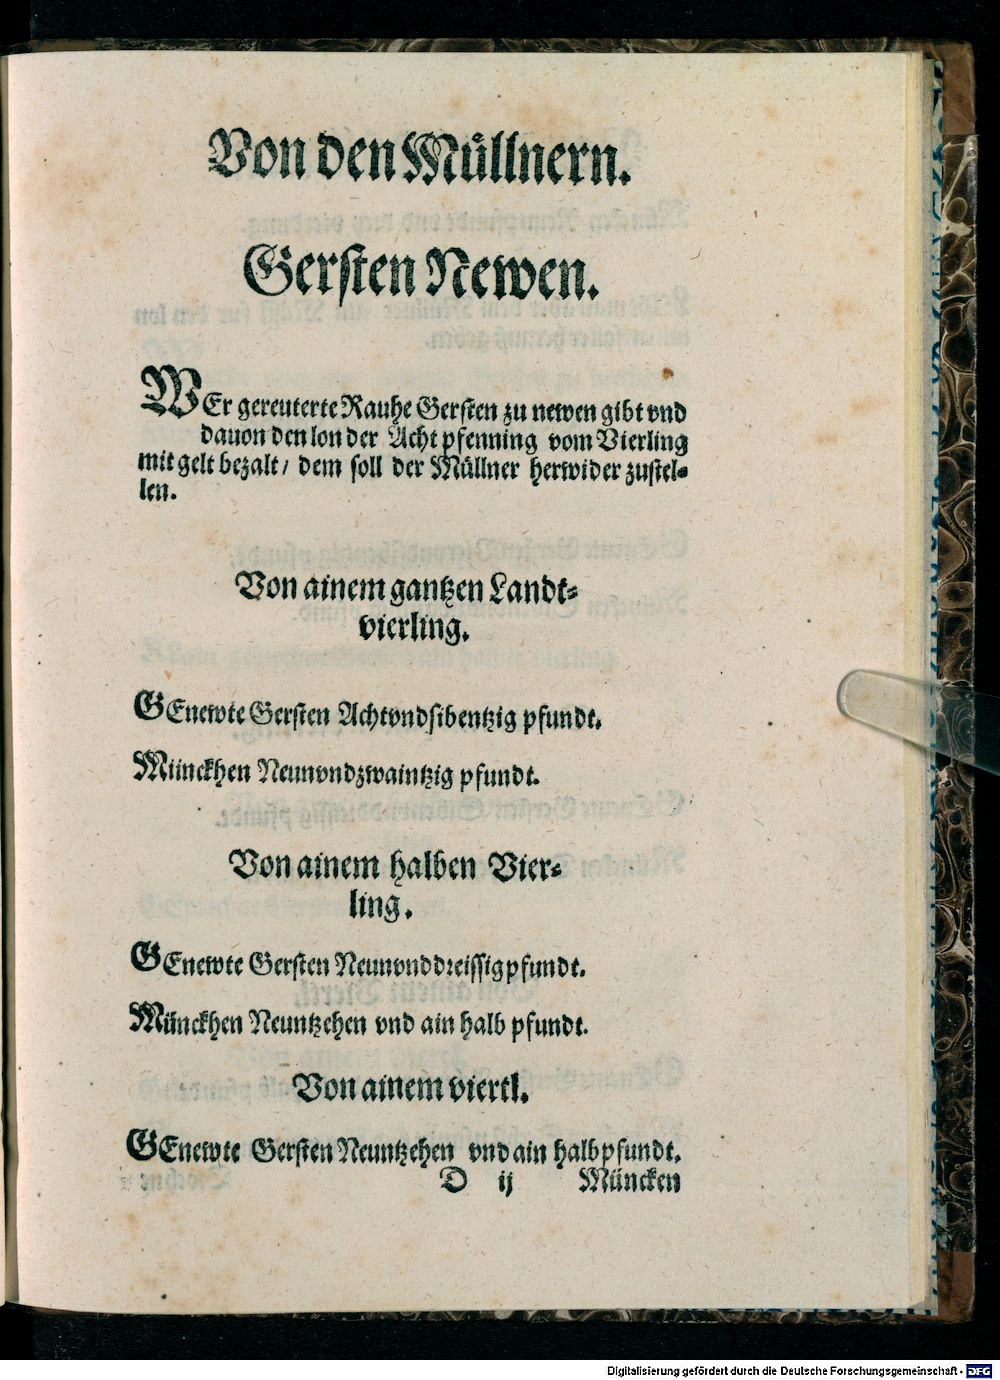 Von den Müllnern.
Gersten Newen.
WEr gereuterte Rauhe Gersten zu newen gibt vnd
dauon den lon der Acht pfenning vom Vierling
mit gelt bezalt / dem soll der Müllner herwider zustel⸗
len.
Von ainem gantzen Landt⸗
vierling.
GEnewte Gersten Achtvndsibentzig pfundt.
Münckhen Neunvndzwaintzig pfundt.
Von ainem halben Vier⸗
ling.
GEnewte Gersten Neunvnddreissig pfundt.
Münckhen Neuntzehen vnd ain halb pfundt.
Von ainem viertl.
GEnewte Gersten Neuntzehen vnd ain halb pfundt.
D ij Müncken
Digitalisierung gefördert durch die Deutsche Forschungsgemeinschaft - DFG